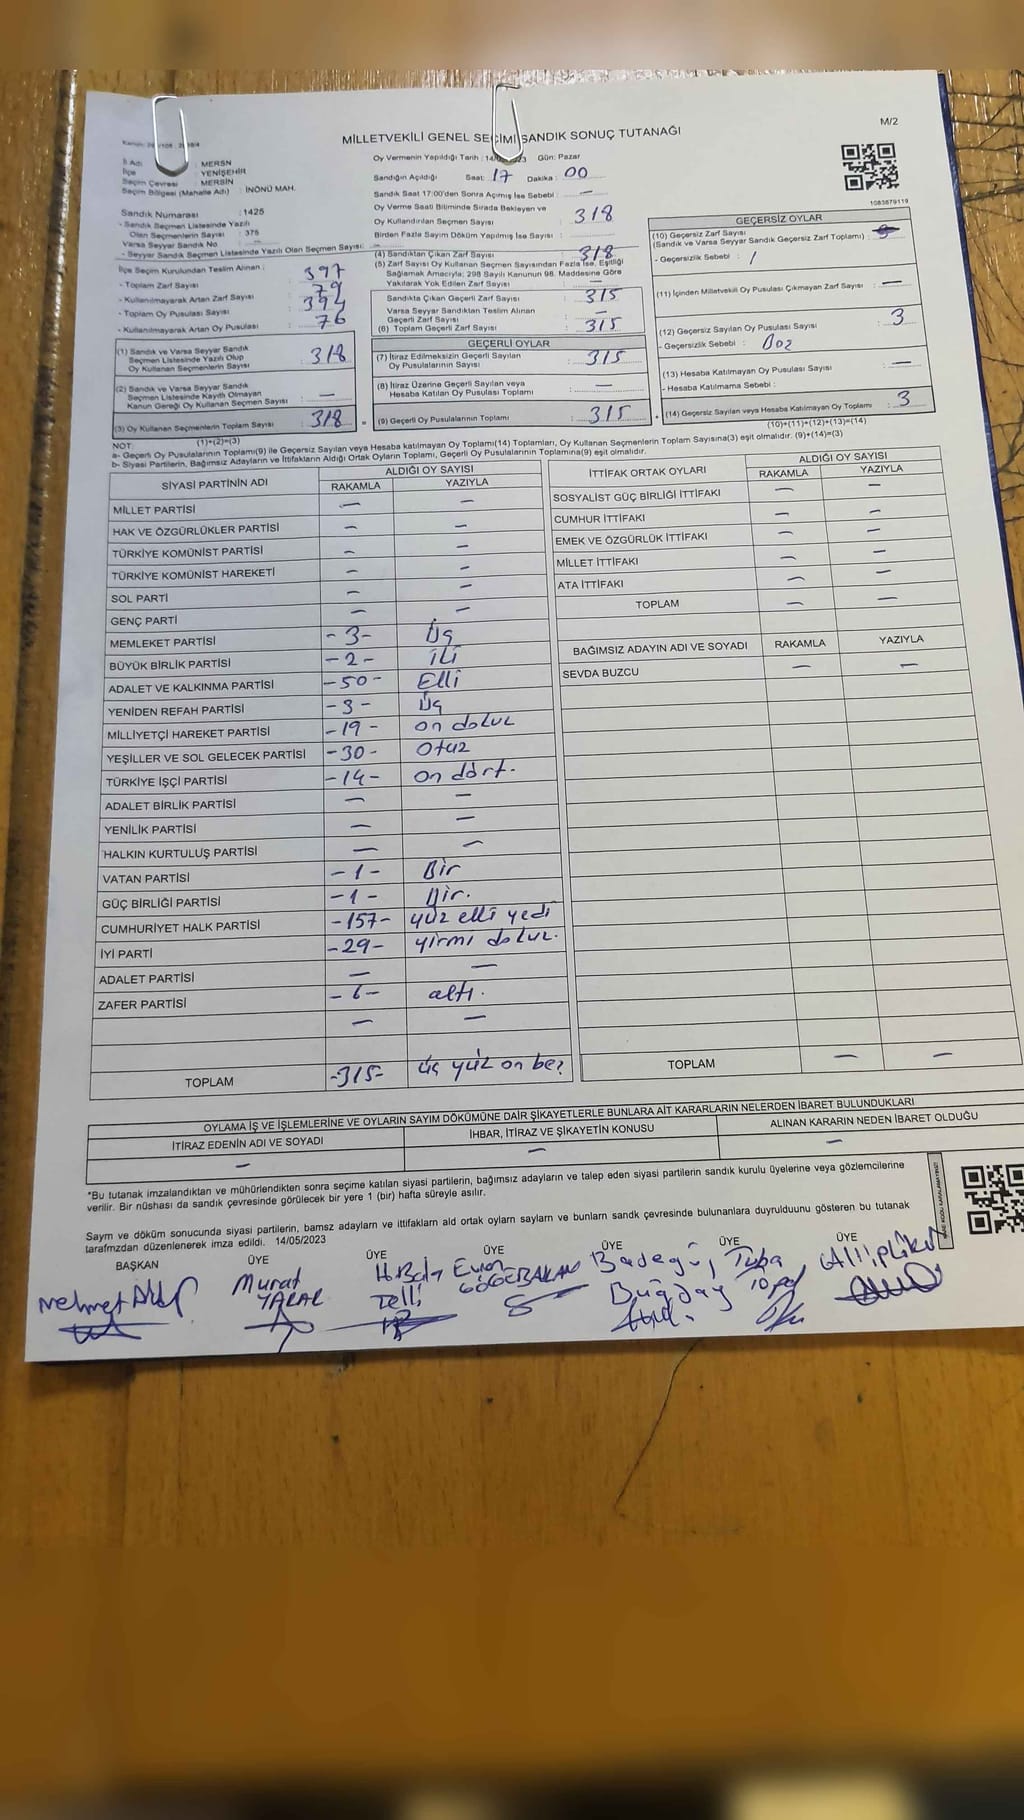 M/2
MİLLETVEKİLİ GENEL SEÇİMİ SANDIK SONUÇ TUTANAĞI
İl Adı : MERSN
İlçe : YENİŞEHİR
Seçim Çevresi : MERSİN
Seçim Bölgesi (Mahalle Adı) : İNÖNÜ MAH.
Sandık Numarası : 1425
- Sandık Seçmen Listesinde Yazılı
Olan Seçmenlerin Sayısı : 375
Varsa Seyyar Sandık No
- Seyyar Sandık Seçmen Listesinde Yazılı Olan Seçmen Sayısı:
İlçe Seçim Kurulundan Teslim Alınan :
- Toplam Zarf Sayısı : 397
- Kullanılmayarak Artan Zarf Sayısı : 79
- Toplam Oy Pusulası Sayısı : 394
- Kullanılmayarak Artan Oy Pusulası : 76
(1) Sandık ve Varsa Seyyar Sandık
Seçmen Listesinde Yazılı Olup
Oy Kullanan Seçmenlerin Sayısı : 318
(2) Sandık ve Varsa Seyyar Sandık
Seçmen Listesinde Kayıtlı Olmayan
Kanun Gereği Oy Kullanan Seçmen Sayısı : —
(3) Oy Kullanan Seçmenlerin Toplam Sayısı : 318
(1)+(2)=(3)
Oy Vermenin Yapıldığı Tarih : Gün: Pazar
Sandığın Açıldığı Saat: 17 Dakika : 00
Sandık Saat 17:00'den Sonra Açılmış İse Sebebi : —
Oy Verme Saati Bitiminde Sırada Bekleyen ve
Oy Kullandırılan Seçmen Sayısı : 318
Birden Fazla Sayım Döküm Yapılmış İse Sayısı :
(4) Sandıktan Çıkan Zarf Sayısı : 318
(5) Zarf Sayısı Oy Kullanan Seçmen Sayısından Fazla İse, Eşitliği
Sağlamak Amacıyla; 298 Sayılı Kanunun 98. Maddesine Göre
Yakılarak Yok Edilen Zarf Sayısı : —
Sandıkta Çıkan Geçerli Zarf Sayısı : 315
Varsa Seyyar Sandıktan Teslim Alınan
Geçerli Zarf Sayısı : —
(6) Toplam Geçerli Zarf Sayısı : 315
GEÇERLİ OYLAR
(7) İtiraz Edilmeksizin Geçerli Sayılan
Oy Pusulalarının Sayısı : 315
(8) İtiraz Üzerine Geçerli Sayılan veya
Hesaba Katılan Oy Pusulası Toplamı : —
(9) Geçerli Oy Pusulalarının Toplamı : 315
1083879119
GEÇERSİZ OYLAR
(10) Geçersiz Zarf Sayısı
(Sandık ve Varsa Seyyar Sandık Geçersiz Zarf Toplamı) :
- Geçersizlik Sebebi : /
(11) İçinden Milletvekili Oy Pusulası Çıkmayan Zarf Sayısı : —
(12) Geçersiz Sayılan Oy Pusulası Sayısı : 3
- Geçersizlik Sebebi :
(13) Hesaba Katılmayan Oy Pusulası Sayısı : —
- Hesaba Katılmama Sebebi :
(14) Geçersiz Sayılan veya Hesaba Katılmayan Oy Toplamı : 3
(10)+(11)+(12)+(13)=(14)
NOT:
a- Geçerli Oy Pusulalarının Toplamı(9) ile Geçersiz Sayılan veya Hesaba katılmayan Oy Toplamı(14) Toplamları, Oy Kullanan Seçmenlerin Toplam Sayısına(3) eşit olmalıdır. (9)+(14)=(3)
b- Siyasi Partilerin, Bağımsız Adayların ve İttifakların Aldığı Ortak Oyların Toplamı, Geçerli Oy Pusulalarının Toplamına(9) eşit olmalıdır.
SİYASİ PARTİNİN ADI ALDIĞI OY SAYISI
RAKAMLA YAZIYLA
MİLLET PARTİSİ — —
HAK VE ÖZGÜRLÜKLER PARTİSİ — —
TÜRKİYE KOMÜNİST PARTİSİ — —
TÜRKİYE KOMÜNİST HAREKETİ — —
SOL PARTİ — —
GENÇ PARTİ — —
MEMLEKET PARTİSİ -3- Üç
BÜYÜK BİRLİK PARTİSİ -2- iki
ADALET VE KALKINMA PARTİSİ -50- Elli
YENİDEN REFAH PARTİSİ -3- Üç
MİLLİYETÇİ HAREKET PARTİSİ -19- on dokuz
YEŞİLLER VE SOL GELECEK PARTİSİ -30- Otuz
TÜRKİYE İŞÇİ PARTİSİ -14- on dört.
ADALET BİRLİK PARTİSİ — —
YENİLİK PARTİSİ — —
HALKIN KURTULUŞ PARTİSİ — —
VATAN PARTİSİ -1- Bir
GÜÇ BİRLİĞİ PARTİSİ -1- Bir.
CUMHURİYET HALK PARTİSİ -157- yüz elli yedi
İYİ PARTİ -29- yirmi dokuz.
ADALET PARTİSİ — —
ZAFER PARTİSİ -6- altı.
— —
TOPLAM -315- üç yüz on beş
İTTİFAK ORTAK OYLARI ALDIĞI OY SAYISI
RAKAMLA YAZIYLA
SOSYALİST GÜÇ BİRLİĞİ İTTİFAKI — —
CUMHUR İTTİFAKI — —
EMEK VE ÖZGÜRLÜK İTTİFAKI — —
MİLLET İTTİFAKI — —
ATA İTTİFAKI — —
TOPLAM — —
BAĞIMSIZ ADAYIN ADI VE SOYADI RAKAMLA YAZIYLA
SEVDA BUZCU — —
TOPLAM — —
OYLAMA İŞ VE İŞLEMLERİNE VE OYLARIN SAYIM DÖKÜMÜNE DAİR ŞİKAYETLERLE BUNLARA AİT KARARLARIN NELERDEN İBARET BULUNDUKLARI
İTİRAZ EDENİN ADI VE SOYADI İHBAR, İTİRAZ VE ŞİKAYETİN KONUSU ALINAN KARARIN NEDEN İBARET OLDUĞU
— — —
*Bu tutanak imzalandıktan ve mühürlendikten sonra seçime katılan siyasi partilerin, bağımsız adayların ve talep eden siyasi partilerin sandık kurulu üyelerine veya gözlemcilerine
verilir. Bir nüshası da sandık çevresinde görülecek bir yere 1 (bir) hafta süreyle asılır.
Sayım ve döküm sonucunda siyasi partilerin, bamsz adaylarn ve ittifakların ald ortak oylarn saylarn ve bunlarn sandk çevresinde bulunanlara duyrulduunu gösteren bu tutanak
tarafmzdan düzenlenerek imza edildi. 14/05/2023
BAŞKAN ÜYE ÜYE ÜYE ÜYE ÜYE ÜYE
Murat Tuba